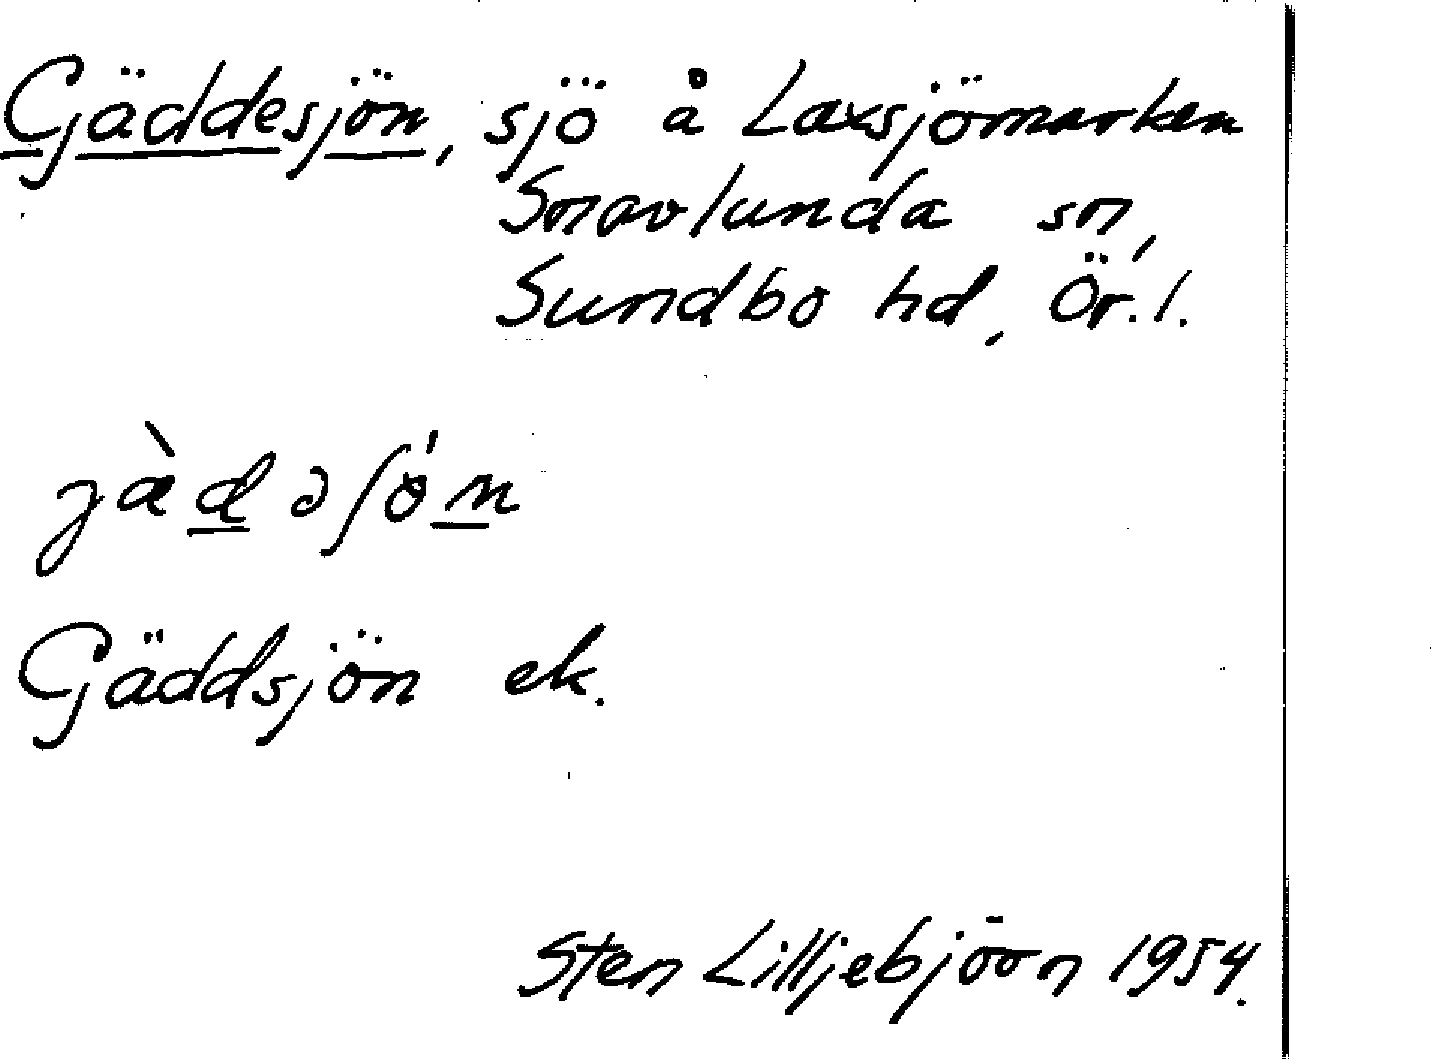 Gäddesjön, sjö å Laxsjömarken
Snavlunda sn,
Sundbo hd, Ör. l.
jὰd̲əʃön̲
Gäddsjön ek.
Sten Lilljebjörn 1954.